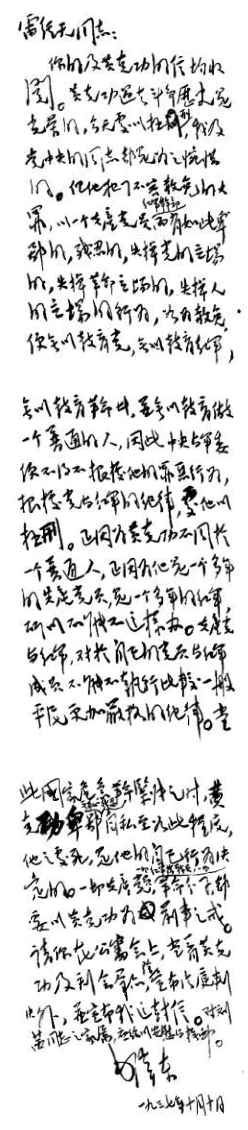 雷经天同志:
你的及黄克功的信均收
阅。黄克功过去斗争历史是
光荣的,今天处以极刑,我及
党中央的同志都是为之惋惜
的。但他犯了不容赦免的大
罪,以一个共产党员红军干部而有如此卑
鄙的,残忍的,失掉党的立场
的,失掉革命立场的,失掉人
的立场的行为,如为赦免,
便无以教育党,无以教育红军,
无以教育革命者,并无以教育做
一个普通的人,因此中央与军委
便不得不根据他的罪恶行为,
根据党与红军的纪律,处他以
极刑。正因为黄克功不同于
一个普通人,正因为他是一个多年
的共产党员,是一个多年的红军
所以不能不这样办。共产党
与红军,对于自己的党员与红军
成员不能不执行比较一般
平民更加严格的纪律。当
此国家危急革命紧张之时,黄
克功卑鄙无耻残忍自私至如此程度,
他之处死,是他的自己行为决
定的。一切共产党员,一切红军指战员,一切革命分子,都
要以黄克功为前车之戒。
请你在公审会上,当着黄克
功及到会群众,除宣布法庭判
决外,并宣布我这封信。对刘
茜同志之家属,应给以安慰与抚恤。
毛泽东
一九三七年十月十日